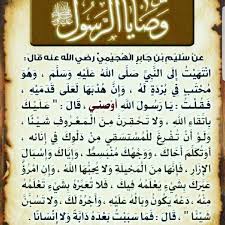 وصايا الرسول ﷺ
عن سليم بن جابر الهجيمي رضي الله عنه قال:
انتهيت إلى النبي صلى الله عليه وسلم ، وهو
محتب في بردة له ، وإن هدبها لعلى قدميه
فقلت : يا رسول الله أوصني ، قال : " عليك
باتقاء الله ، ولا تحقرن من المعروف شيئا ،
ولو أن تفرغ للمستسقي من دلوك في إنائه ،
أو تكلم أخاك ، ووجهك منبسط ، وإياك وإسبال
الإزار ، فإنها من المخيلة ولا يحبها الله ، وإن امرؤ
عيرك بشيء يعلمه فيك ، فلا تعيره بشيء تعلمه
منه ، دعه يكون وباله عليه ، وأجره لك ، ولا تسبن
شيئا " ، قال : فما سببت بعده دابة ولا إنسانا .